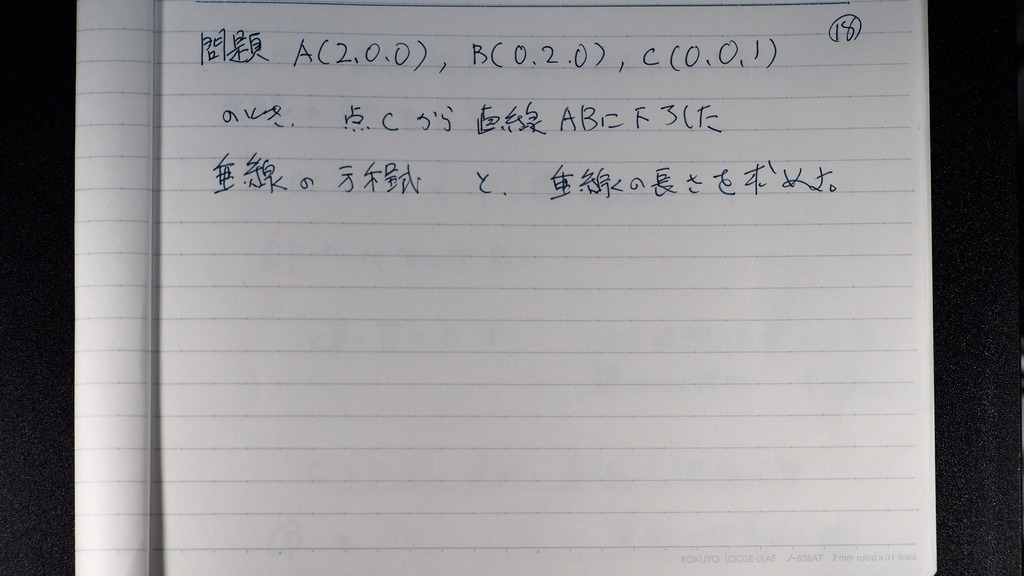 ⑱
問題 A(2.0.0), B(0.2.0), C(0.0.1)
のとき. 点Cから 直線ABに下ろした
垂線の方程式 と. 垂線の長さを求めよ。
KOKUYO LOOSE-LEAF ノ-836AT 7 mm ruled×31 lines